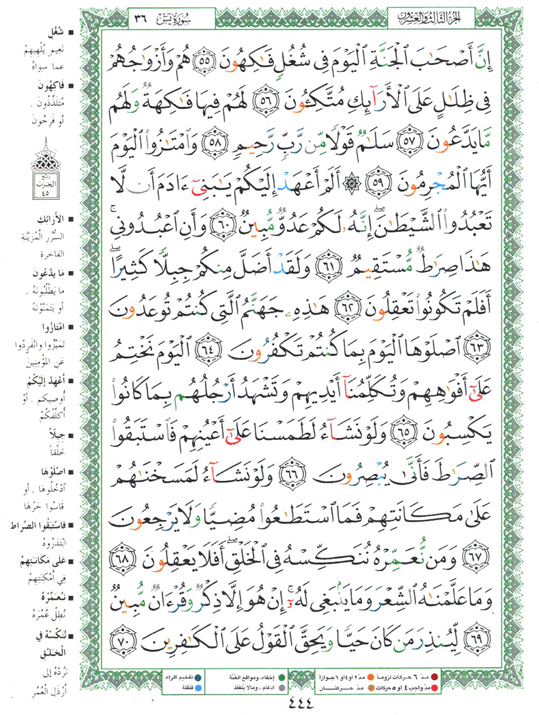 الجزء الثالث والعشرون
سورة يس ٣٦
إِنَّ أَصْحَابَ الْجَنَّةِ الْيَوْمَ فِي شُغُلٍ فَاكِهُونَ ٥٥ هُمْ وَأَزْوَاجُهُمْ
فِي ظِلَالٍ عَلَى الْأَرَائِكِ مُتَّكِئُونَ ٥٦ لَهُمْ فِيهَا فَاكِهَةٌ وَلَهُم
مَّا يَدَّعُونَ ٥٧ سَلَامٌ قَوْلًا مِّن رَّبٍّ رَّحِيمٍ ٥٨ وَامْتَازُوا الْيَوْمَ
أَيُّهَا الْمُجْرِمُونَ ٥٩ ۞ أَلَمْ أَعْهَدْ إِلَيْكُمْ يَا بَنِي آدَمَ أَن لَّا
تَعْبُدُوا الشَّيْطَانَ إِنَّهُ لَكُمْ عَدُوٌّ مُّبِينٌ ٦٠ وَأَنِ اعْبُدُونِي
هَٰذَا صِرَاطٌ مُّسْتَقِيمٌ ٦١ وَلَقَدْ أَضَلَّ مِنكُمْ جِبِلًّا كَثِيرًا
أَفَلَمْ تَكُونُوا تَعْقِلُونَ ٦٢ هَٰذِهِ جَهَنَّمُ الَّتِي كُنتُمْ تُوعَدُونَ
٦٣ اصْلَوْهَا الْيَوْمَ بِمَا كُنتُمْ تَكْفُرُونَ ٦٤ الْيَوْمَ نَخْتِمُ
عَلَىٰ أَفْوَاهِهِمْ وَتُكَلِّمُنَا أَيْدِيهِمْ وَتَشْهَدُ أَرْجُلُهُم بِمَا كَانُوا
يَكْسِبُونَ ٦٥ وَلَوْ نَشَاءُ لَطَمَسْنَا عَلَىٰ أَعْيُنِهِمْ فَاسْتَبَقُوا
الصِّرَاطَ فَأَنَّىٰ يُبْصِرُونَ ٦٦ وَلَوْ نَشَاءُ لَمَسَخْنَاهُمْ
عَلَىٰ مَكَانَتِهِمْ فَمَا اسْتَطَاعُوا مُضِيًّا وَلَا يَرْجِعُونَ
٦٧ وَمَن نُّعَمِّرْهُ نُنَكِّسْهُ فِي الْخَلْقِ أَفَلَا يَعْقِلُونَ ٦٨
وَمَا عَلَّمْنَاهُ الشِّعْرَ وَمَا يَنبَغِي لَهُ إِنْ هُوَ إِلَّا ذِكْرٌ وَقُرْآنٌ مُّبِينٌ
٦٩ لِّيُنذِرَ مَن كَانَ حَيًّا وَيَحِقَّ الْقَوْلُ عَلَى الْكَافِرِينَ ٧٠
شُغُلٍ
نعيم يُلهيهم
عما سواه
فَاكِهُونَ
متلذّذون .
أو فرحون
ربع
الحزب
٤٥
الأرائك
السُّرر المُزيَّنة
الفاخرة
مَا يدّعُون
ما يطلبُونه
أو يتمنّونه
امْتازُوا
تميّزُوا وانفردُوا
عن المؤمنين
أعْهَد إليْكُمْ
أُوصيكم . أوْ
أُكلّفْكُمْ
جِبِلاً
خَلْقاً
اصْلَوْها
ادخُلُوها . أو
قاسُوا حرّها
فاسْتبقُوا الصراط
ابتدرُوه
عَلَى مَكانتِهِمْ
في أمكنتِهمْ
نُعَمِّرْهُ
نُطِل عُمُرَهُ
نُنَكِّسْهُ فِي
الخَلْق
نرُدّهُ إلى
أرْذل العُمُر
مدّ ٦ حركات لزوماً
مدّ ٢ أو ٤ أو ٦ جوازاً
إخفاء، ومواقع الغُنّة
تفخيم الراء
مدّ واجب ٤ أو ٥ حركات
مدّ حركتان
ادغام، وما لا يُلفظ
قلقلة
٤٤٤